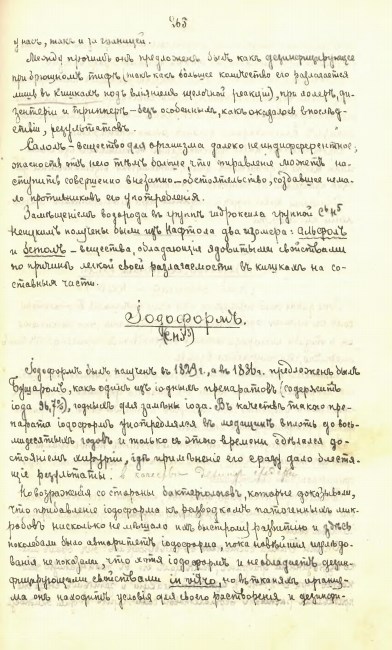 263
у насъ, такъ и за границей.
Между прочимъ онъ предложенъ былъ какъ дезинфицирующее
при брюшномъ тифѣ (такъ какъ большее количество его разлагается
лишь въ кишкахъ подъ вліяніемъ щелочной реакціи), при холерѣ, ди-
зентеріи и трипперѣ – безъ особенныхъ, какъ оказалось впослѣд-
ствіи, результатовъ.
Салолъ – вещество для организма далеко не индифферентное,
опасность отъ него тѣмъ больше, что отравленіе можетъ на-
ступить совершенно внезапно – обстоятельство, создавшее нема-
ло противниковъ его употребленія.
Замѣщеніемъ водорода въ группѣ гидроксила группой
Нецкимъ получены были изъ Нафтола два изомера: Альфолъ
и Бетолъ – вещества, обладающія ядовитыми свойствами
по причинѣ легкой своей разлагаемости въ кишкахъ на со-
ставныя части.
Іодоформъ.
(CHJ³)
Іодоформъ былъ полученъ въ 1829 г., а въ 1836 г. предложенъ былъ
Бушаромъ, какъ одинъ изъ іодныхъ препаратовъ (содержитъ
іода 96,7%), годныхъ для замѣны іода. Въ качествѣ такого пре-
парата іодоформъ употреблялся въ медицинѣ вплоть до вось-
мидесятыхъ годовъ и только съ этого времени сдѣлался до-
стояніемъ хирургіи, гдѣ примѣненіе его сразу дало блестя-
щіе результаты.
Но возраженія со стороны бактеріологовъ, которые доказывали,
что прибавленіе іодоформа къ разводкамъ патогенныхъ мик-
робовъ нисколько не мѣшало ихъ быстрому развитію и здѣсь
поколебали было авторитетъ іодоформа, пока новѣйшія изслѣдо-
ванія не показали, что хотя іодоформъ и не обладаетъ дезин-
фицирующими свойствами in vitro, но въ тканяхъ организ-
ма онъ находитъ условія для своего растворенія и дезинфи-